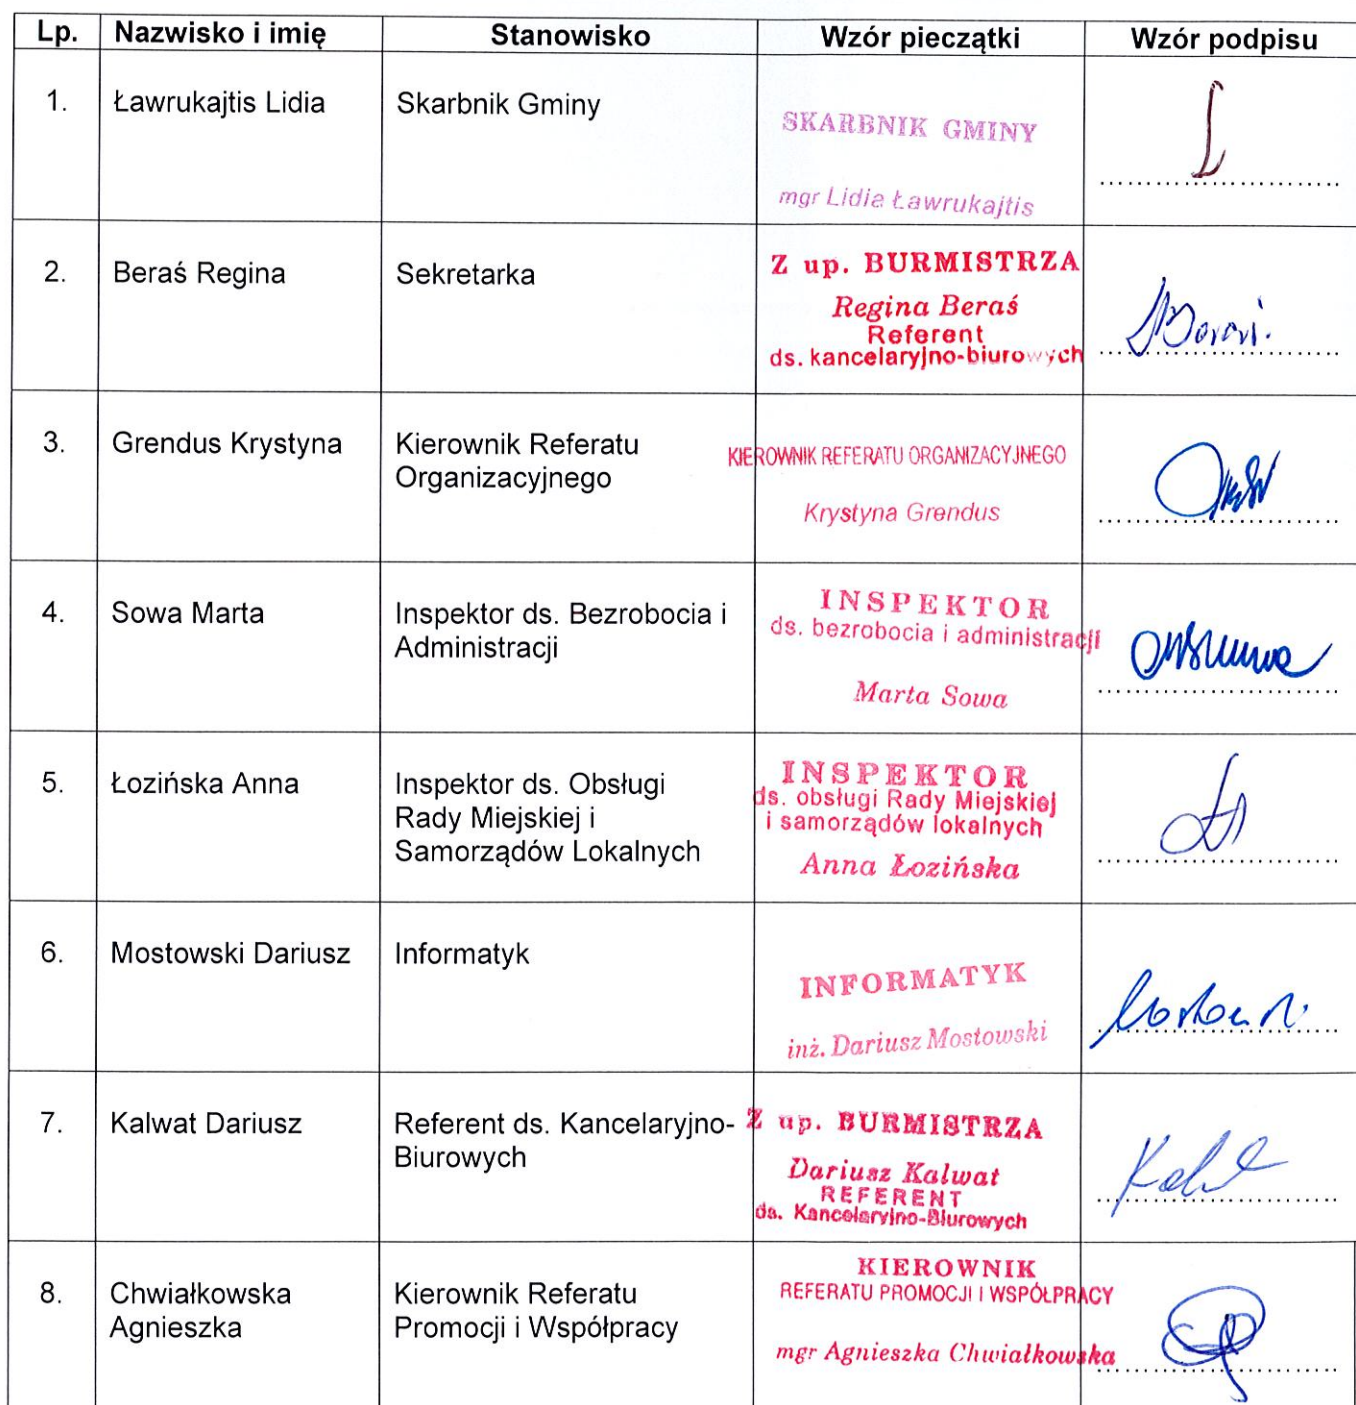 Lp. Nazwisko i imię Stanowisko Wzór pieczątki Wzór podpisu
1. Ławrukajtis Lidia Skarbnik Gminy
SKARBNIK GMINY
mgr Lidia Ławrukajtis
2. Beraś Regina Sekretarka
Z up. BURMISTRZA
Regina Beraś
Referent
ds. kancelaryjno-biurowych
3. Grendus Krystyna Kierownik Referatu
Organizacyjnego
KIEROWNIK REFERATU ORGANIZACYJNEGO
Krystyna Grendus
4. Sowa Marta Inspektor ds. Bezrobocia i
Administracji
INSPEKTOR
ds. bezrobocia i administracji
Marta Sowa
5. Łozińska Anna Inspektor ds. Obsługi
Rady Miejskiej i
Samorządów Lokalnych
INSPEKTOR
ds. obsługi Rady Miejskiej
i samorządów lokalnych
Anna Łozińska
6. Mostowski Dariusz Informatyk
INFORMATYK
inż. Dariusz Mostowski
7. Kalwat Dariusz Referent ds. Kancelaryjno-
Biurowych
Z up. BURMISTRZA
Dariusz Kalwat
REFERENT
ds. Kancelaryjno-Biurowych
8. Chwiałkowska
Agnieszka
Kierownik Referatu
Promocji i Współpracy
KIEROWNIK
REFERATU PROMOCJI I WSPÓŁPRACY
mgr Agnieszka Chwiałkowska